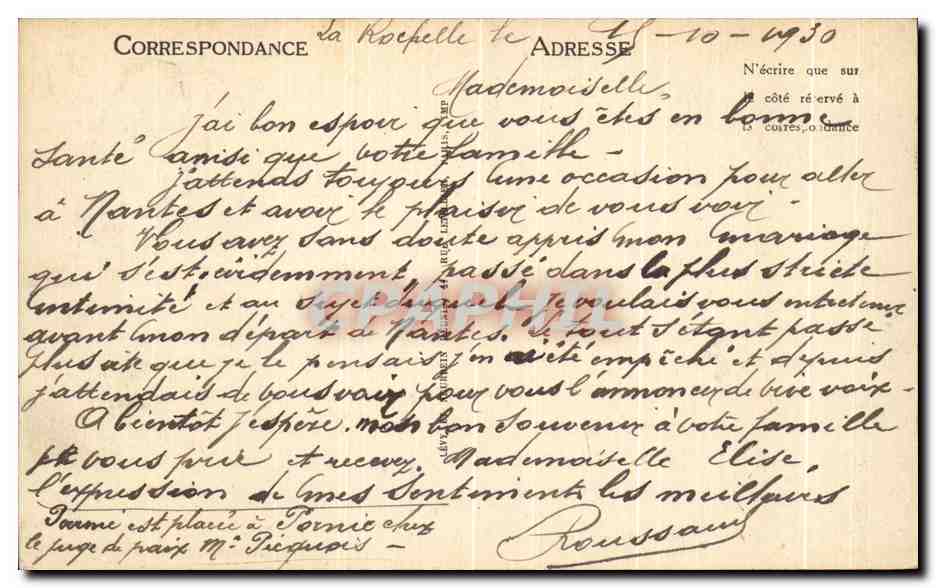 La Rochelle le 15-10-1930
CORRESPONDANCE ADRESSE
N'écrire que sur
le côté réservé à
la correspondance
Mademoiselle,
J'ai bon espoir que vous êtes en bonne
santé ainsi que votre famille -
J'attends toujours une occasion pour aller
à Nantes et avoir le plaisir de vous voir -
Vous avez sans doute appris mon mariage
qui s'est, évidemment, passé dans la plus stricte
intimité et au sujet duquel je voulais vous entretenir
avant mon départ à Nantes. Le tout s'étant passé
plus que je le pensais j'en ai été empêché et depuis
j'attendais de vous voir pour vous l'annoncer de vive voix -
A bientôt j'espère. mon bon souvenir à votre famille
je vous prie et recevez, Mademoiselle Elise,
l'expression de mes sentiments les meilleurs
est placé à Pornic chez
le juge de paix Mr
Roussaud
LÉVY ET NEURDEIN RÉUNIS, 44, RUE LETELLIER, PARIS, IMP
CPAPHIL